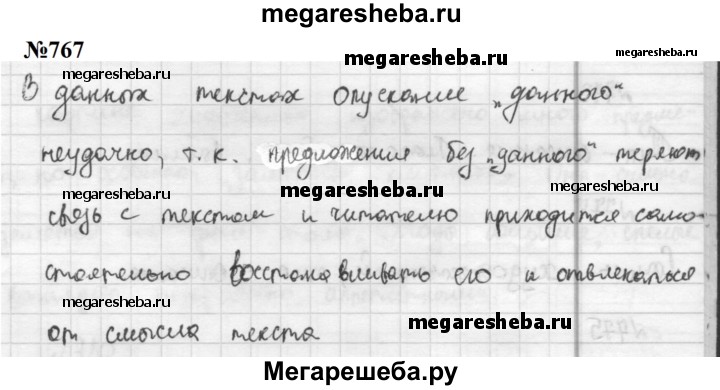 megaresheba.ru
№767
megaresheba.ru
megaresheba.ru
megaresheba.ru
В данных текстах опускание „данного“
неудачно, т. к. предложения без „данного“ теряют
megaresheba.ru
megaresheba.ru
megaresheba.ru
связь с текстом и читателю приходится само-
стоятельно восстанавливать его и отвлекаться
megaresheba.ru
от смысла текста
megaresheba.ru
Мегарешеба.ру